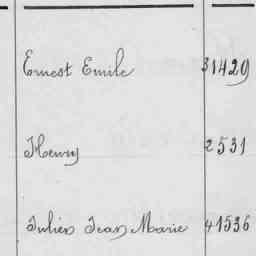 Ernest Emile 31429
Henry 2531
Julien Jean Marie 41536